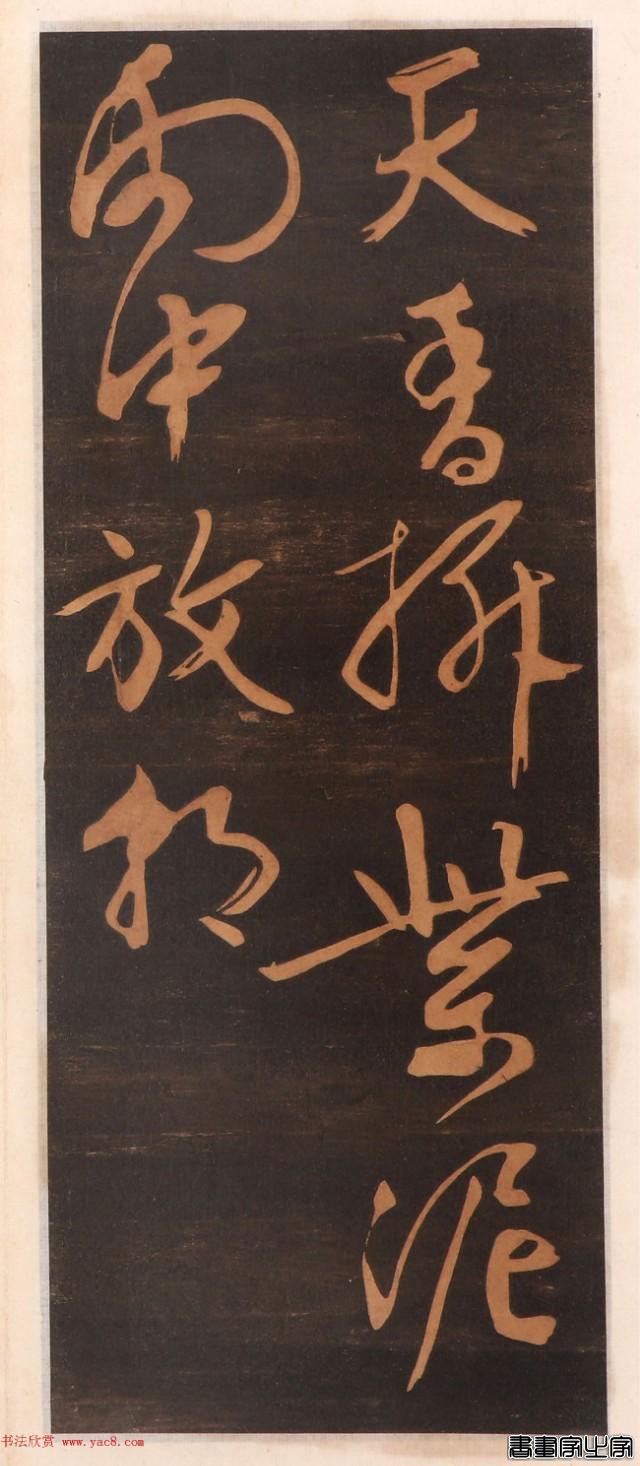 天香紫泥
雨中放朝
书法欣赏 www.yac8.com
書畫家之家